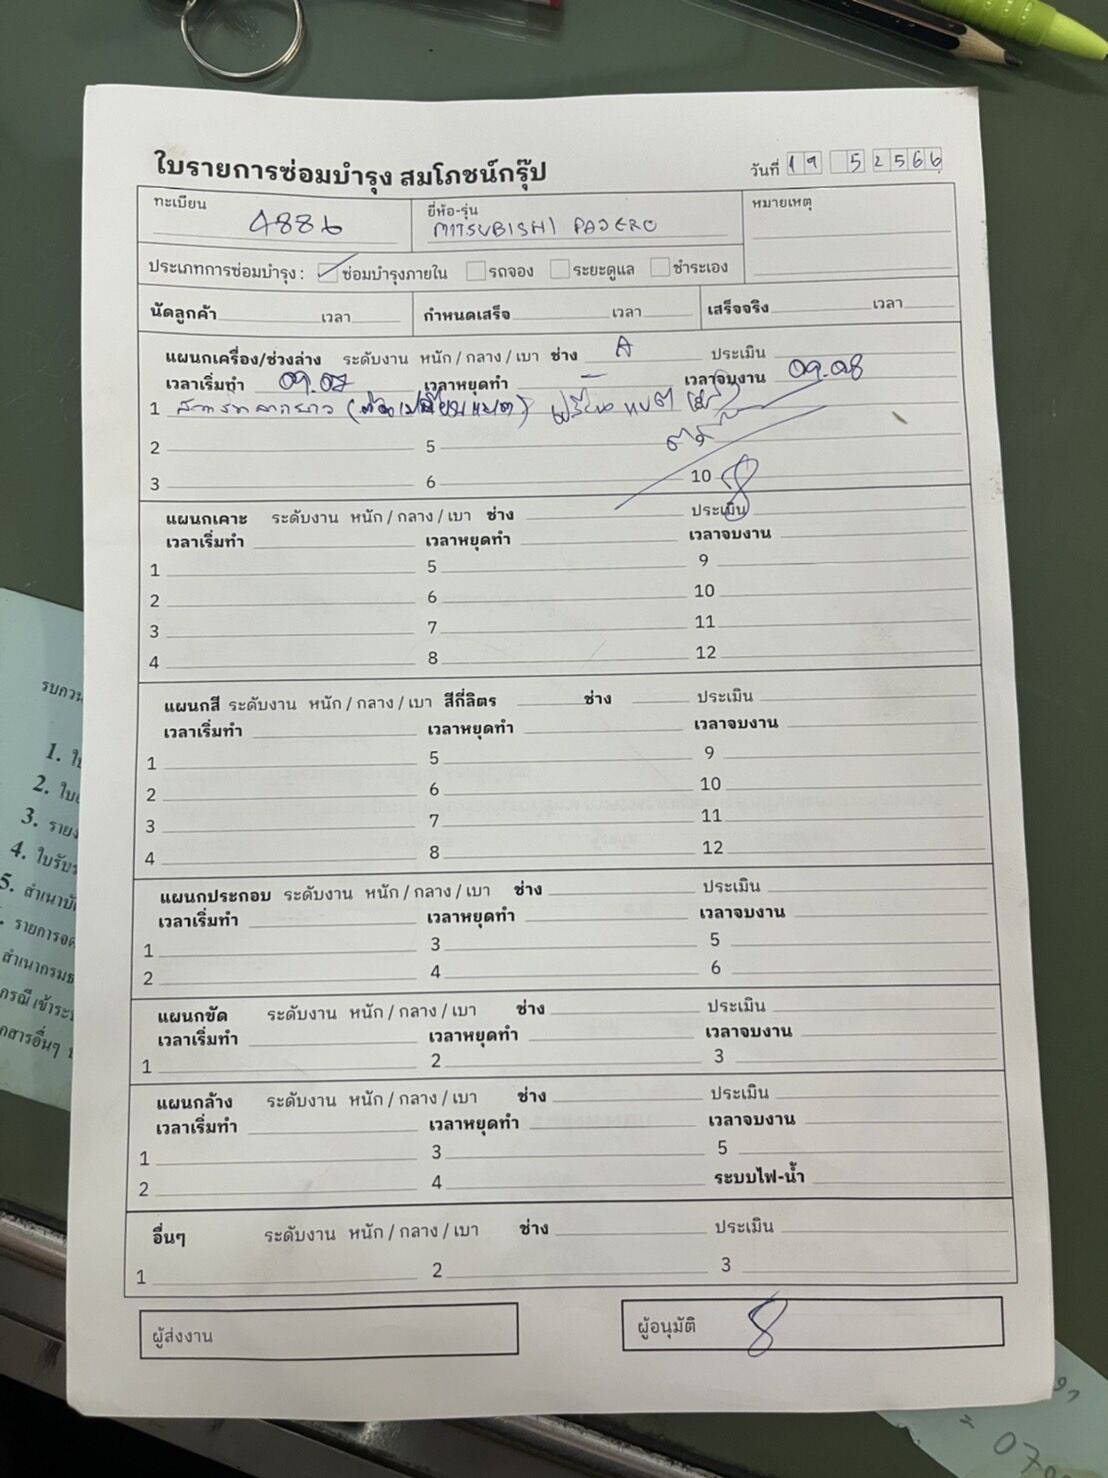 ใบรายการซ่อมบำรุง สมโภชน์กรุ๊ป
วันที่ 19 5 2566
ทะเบียน 4886
ยี่ห้อ-รุ่น MITSUBISHI PAJERO
หมายเหตุ
ประเภทการซ่อมบำรุง : ซ่อมบำรุงภายใน รถจอง ระยะดูแล ชำระเอง
นัดลูกค้า เวลา กำหนดเสร็จ เวลา เสร็จจริง เวลา
แผนกเครื่อง/ช่วงล่าง ระดับงาน หนัก / กลาง / เบา ช่าง A ประเมิน
เวลาเริ่มทำ 09.07 เวลาหยุดทำ - เวลาจบงาน 09.08
1 สตาร์ทลากยาว (ต้องเปลี่ยนแบต) เปลี่ยนแบต
2 5
3 6 10 8
แผนกเคาะ ระดับงาน หนัก / กลาง / เบา ช่าง ประเมิน
เวลาเริ่มทำ เวลาหยุดทำ เวลาจบงาน
1 5 9
2 6 10
3 7 11
4 8 12
แผนกสี ระดับงาน หนัก / กลาง / เบา สีกี่ลิตร ช่าง ประเมิน
เวลาเริ่มทำ เวลาหยุดทำ เวลาจบงาน
1 5 9
2 6 10
3 7 11
4 8 12
แผนกประกอบ ระดับงาน หนัก / กลาง / เบา ช่าง ประเมิน
เวลาเริ่มทำ เวลาหยุดทำ เวลาจบงาน
1 3 5
2 4 6
แผนกขัด ระดับงาน หนัก / กลาง / เบา ช่าง ประเมิน
เวลาเริ่มทำ เวลาหยุดทำ เวลาจบงาน
1 2 3
แผนกล้าง ระดับงาน หนัก / กลาง / เบา ช่าง ประเมิน
เวลาเริ่มทำ เวลาหยุดทำ เวลาจบงาน
1 3 5
2 4 ระบบไฟ-น้ำ
อื่นๆ ระดับงาน หนัก / กลาง / เบา ช่าง ประเมิน
1 2 3
ผู้ส่งงาน
ผู้อนุมัติ 8
รบกวน
1.
2.
3.
4. ใบรับ
5. สำเนา
รายการ
สำเนากรม
กรณีเข้า
อื่นๆ